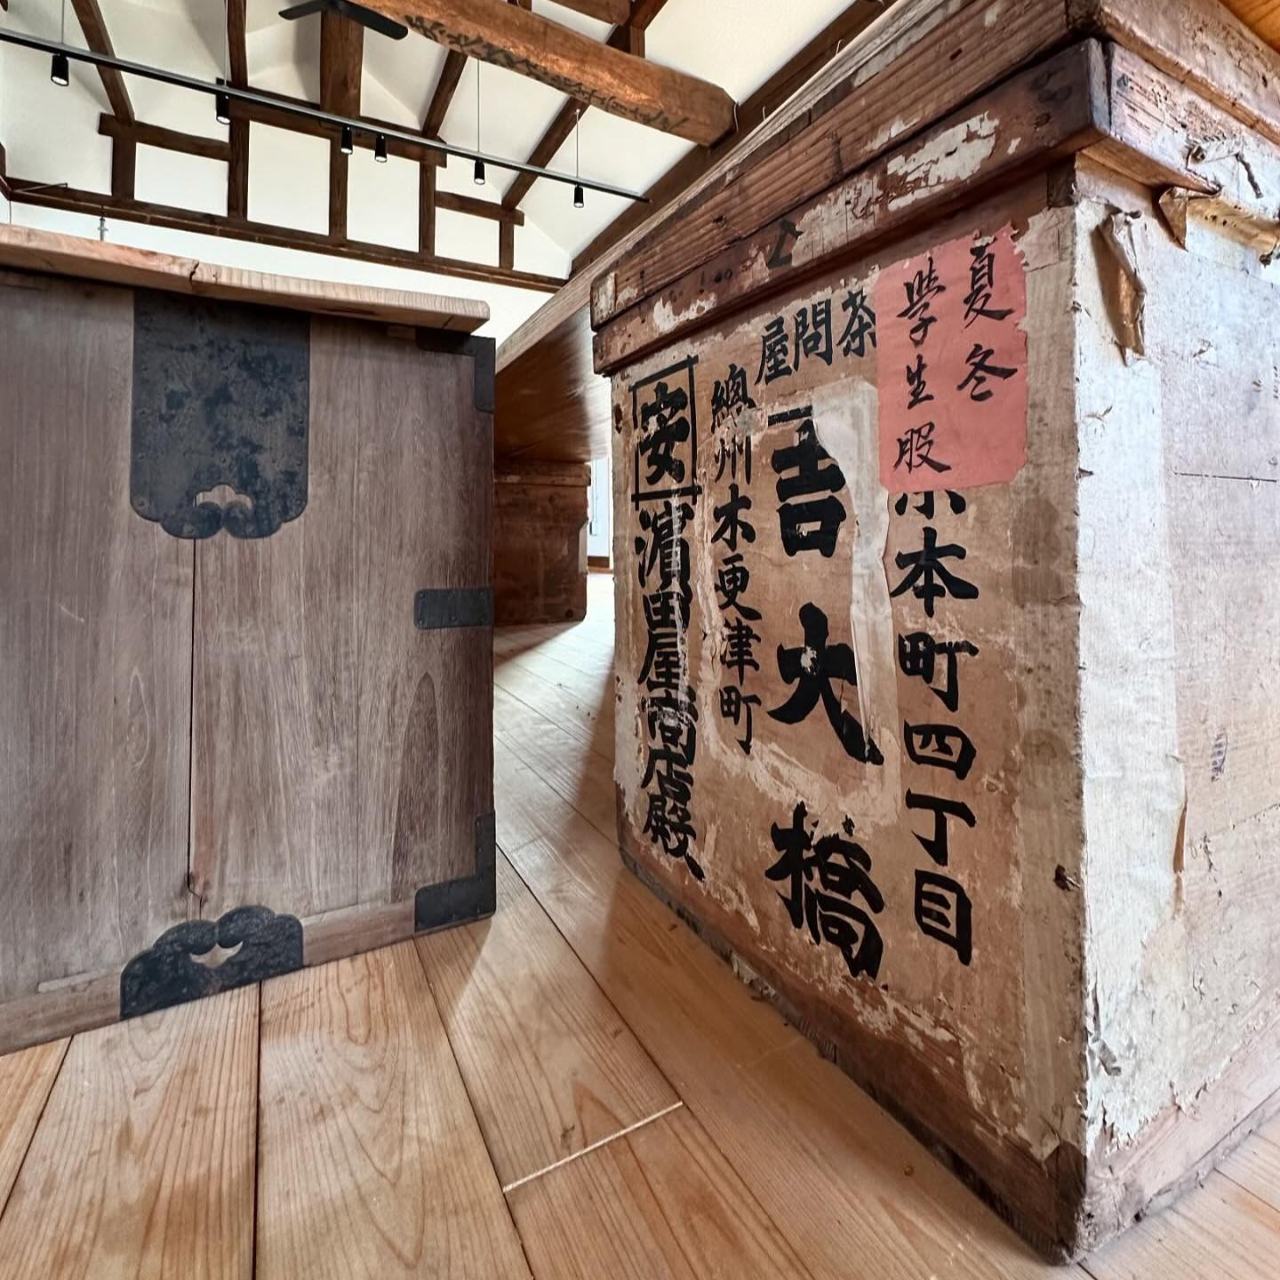 夏冬
學生股
本町四丁目
茶問屋
大橋
總州木更津町
安
濱田屋商店殿